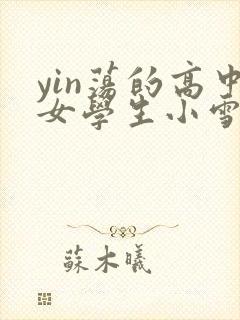 yin蕩的高中
女學生小雪
蘇木曦